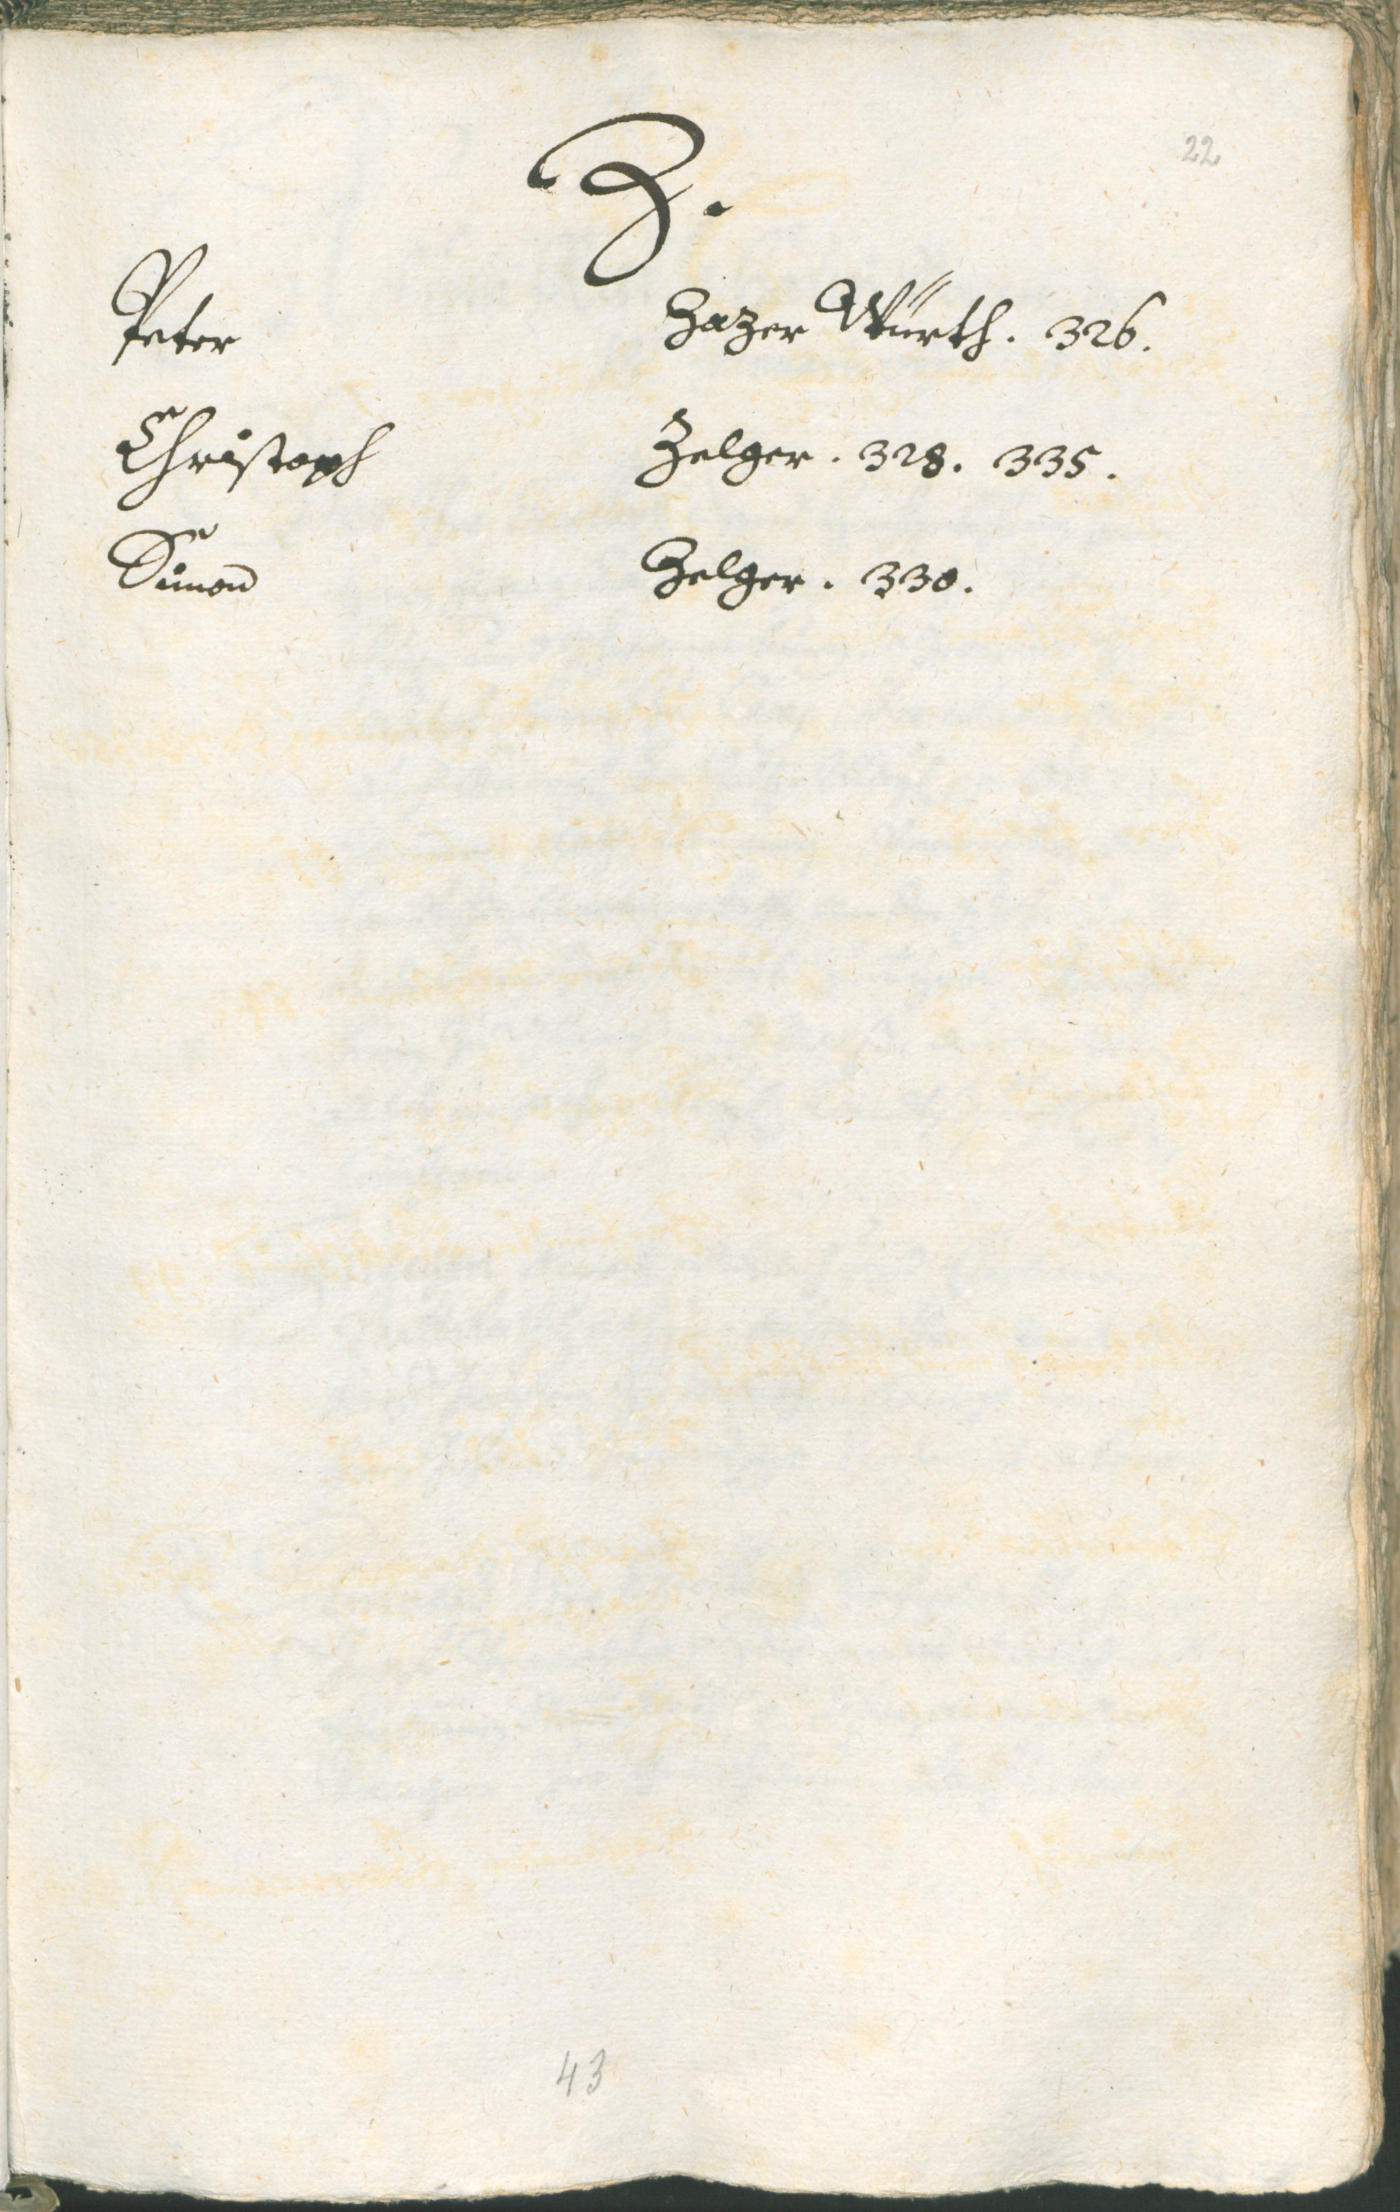 22
Z.
Peter Zazer Würth. 326.
Christoph Zelger. 328. 335.
Simon Zelger. 330.
43